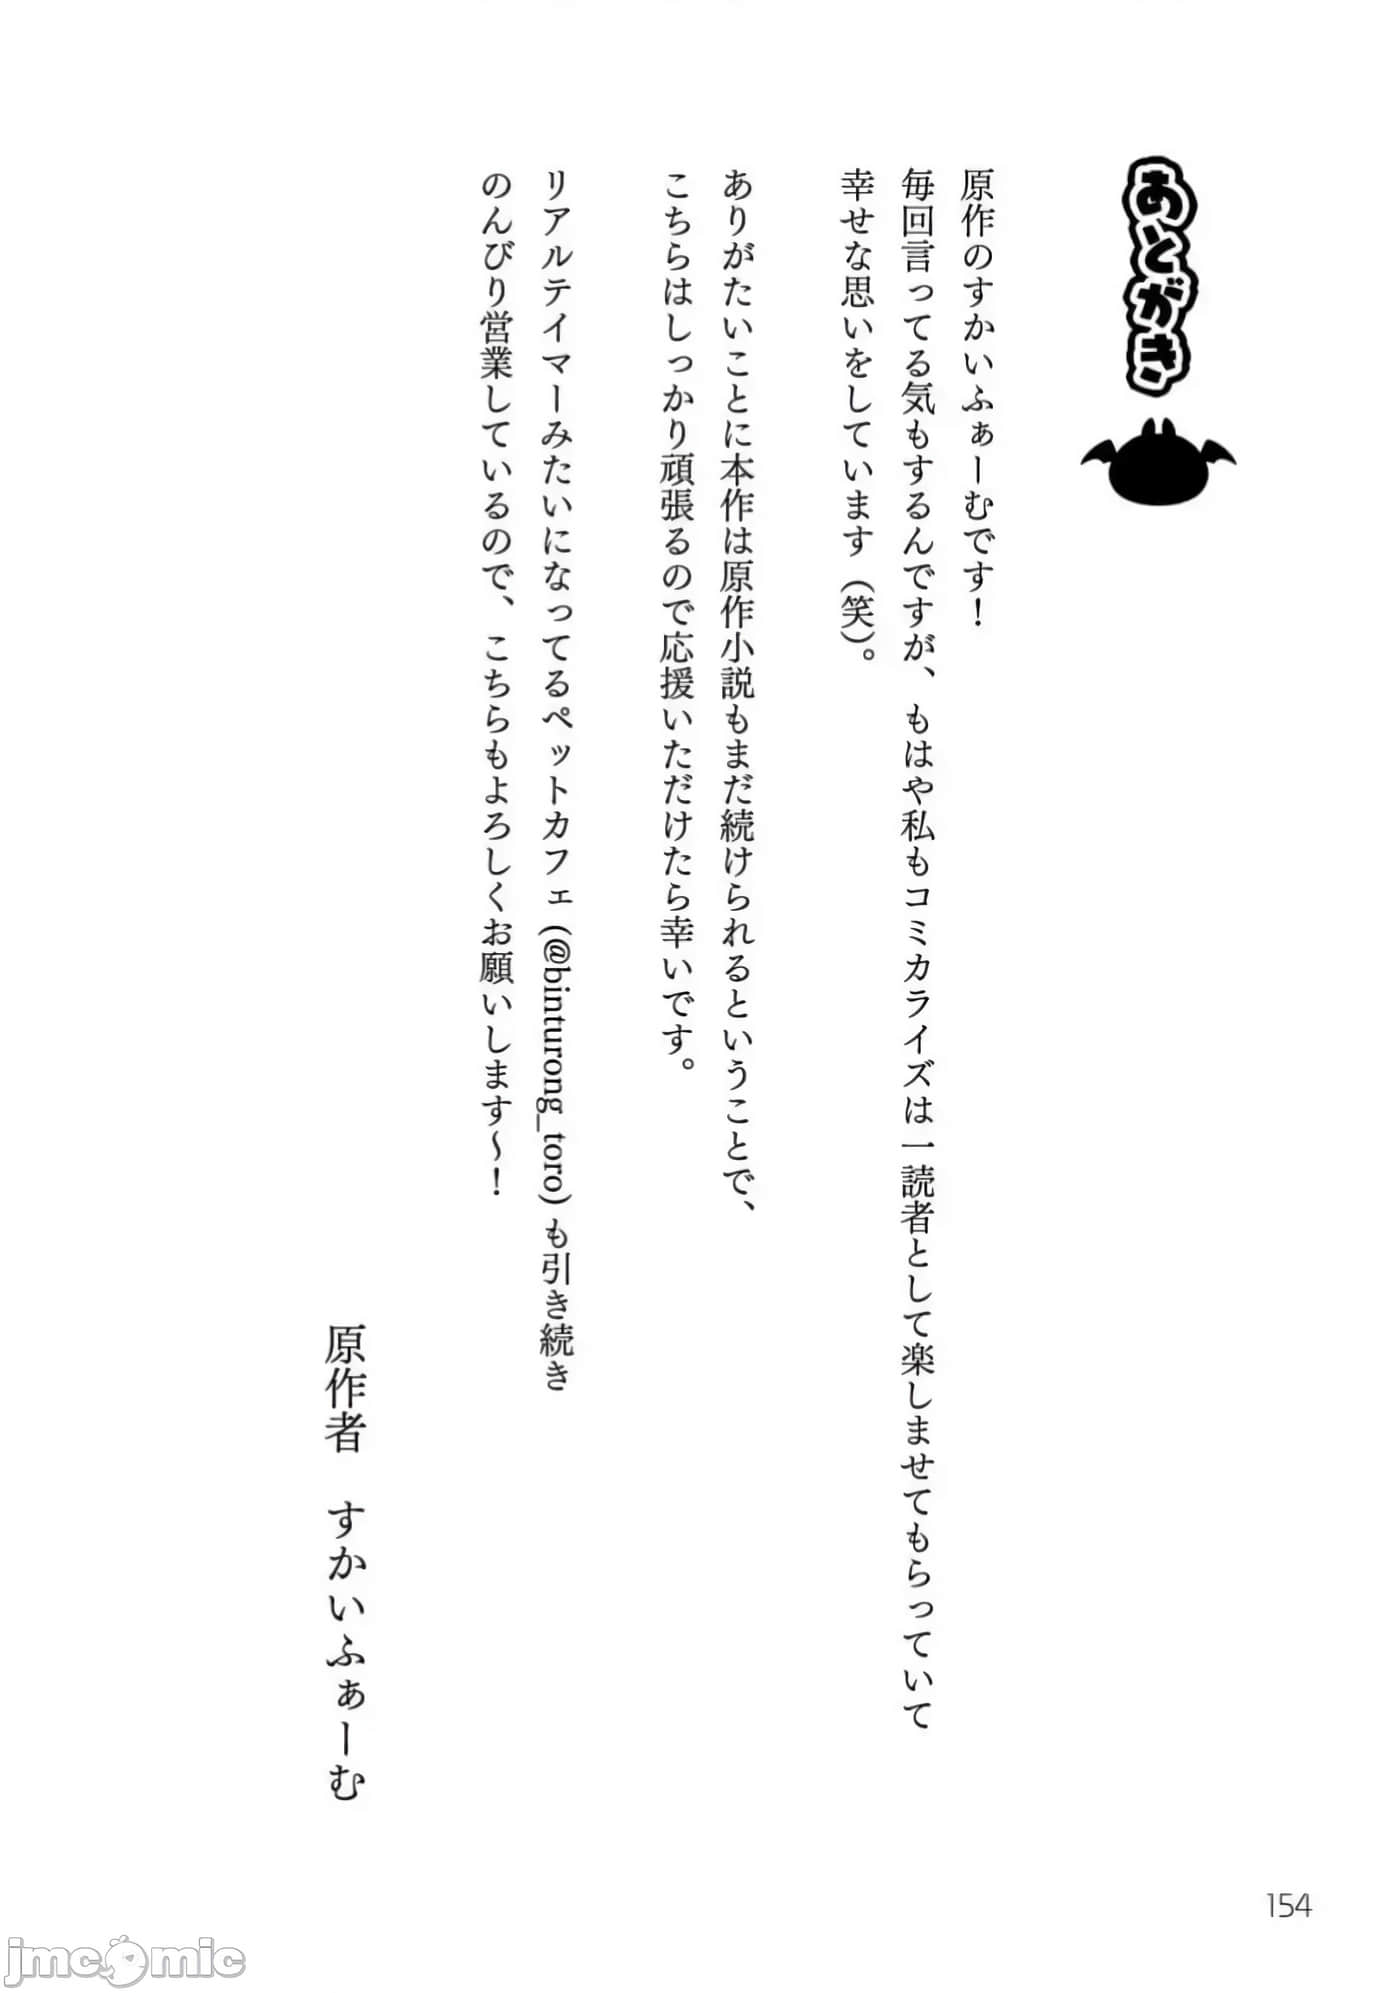 あとがき
原作のすかいふぁーむです！
毎回言ってる気もするんですが、もはや私もコミカライズは一読者として楽しませてもらっていて
幸せな思いをしています（笑）。
ありがたいことに本作は原作小説もまだ続けられるということで、
こちらはしっかり頑張るので応援いただけたら幸いです。
リアルテイマーみたいになってるペットカフェ(@binturong_toro)も引き続き
のんびり営業しているので、こちらもよろしくお願いします～！
原作者　すかいふぁーむ
154
jmcomic